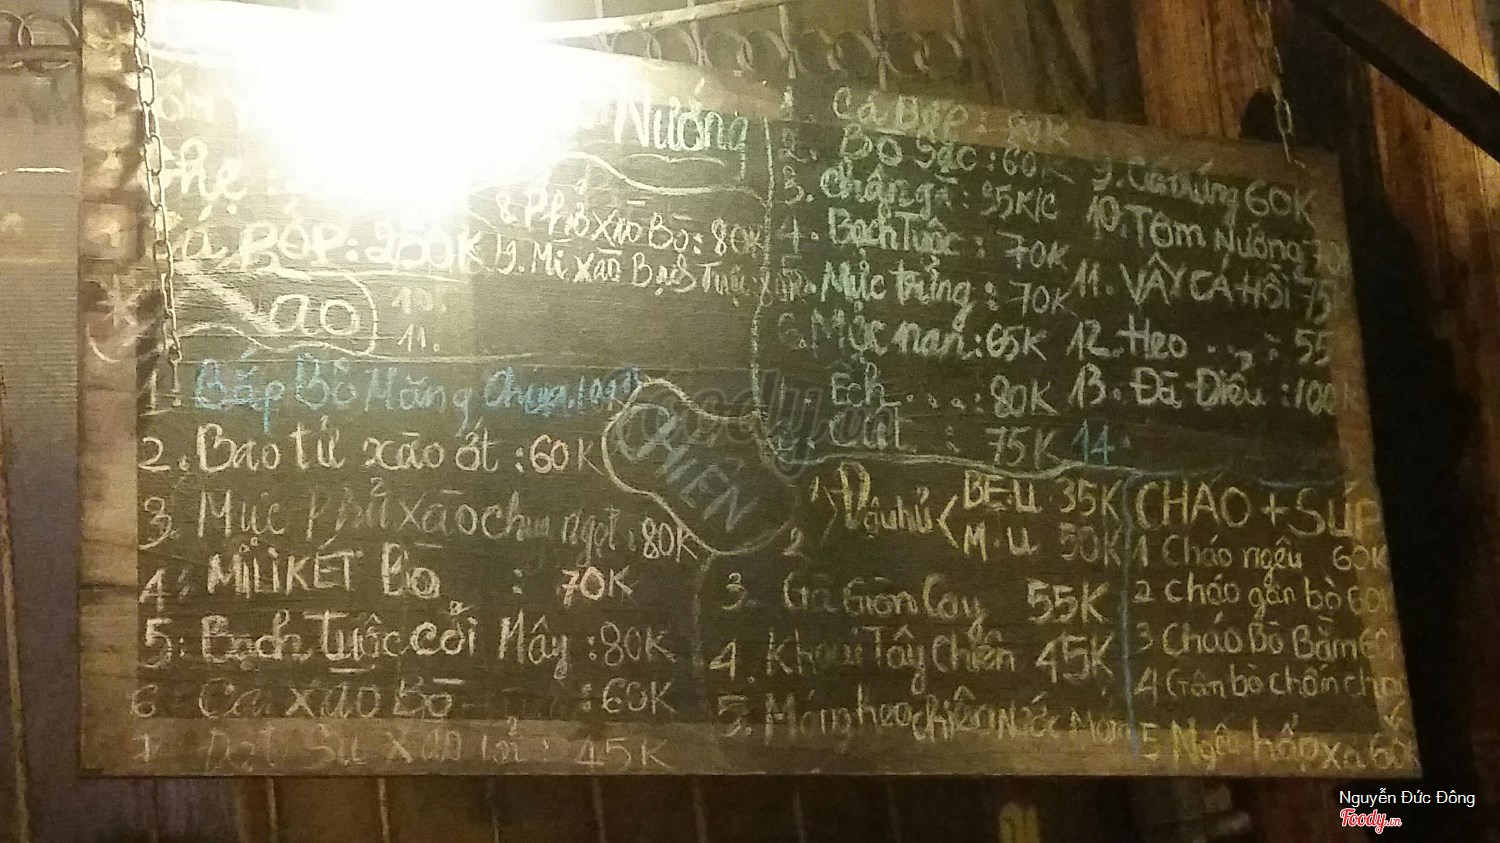 Nướng
Ghẹ :
BỐP: 250K
8. Phở xào Bò: 80K
9. Mì xào Bạch Tuộc
Xào
10.
11.
1. Bắp Bò Măng Chua
2. Bao tử xào ớt : 60K
3. Mực Phủ xào chua ngọt : 80K
4. MILIKET Bò : 70K
5: Bạch Tuộc cối Mây : 80K
6 Cà xào Bò : 60K
7 xào : 45K
1. Cá Bóp : 80K
2. Bò Sạc : 60K
3. Chân gà : 35K/C
4. Bạch Tuộc : 70K
5. Mực trứng : 70K
6. Mực nan : 65K
Ếch .... : 80K
Cút : 75K
9. Cá trứng 60K
10. TÔM Nướng 70K
11. VÂY CÁ HỒI 75
12. Heo ... : 55
13. Đà Điểu : 100
14.
CHIÊN
1 2 > Đậu hủ < BE.U 35K
M.U 50K
3. Gà Giòn Cay 55K
4. Khoai Tây Chiên 45K
5. Móng heo chiên Nước Mắm
CHÁO + SÚP
1 Cháo ngêu 60K
2 Cháo gân bò 60
3 Cháo Bò Bằm 60
4 Gân bò chấm chao
5 Ngêu hấp xả 60
foody.vn
Nguyễn Đức Đông
Foody.vn